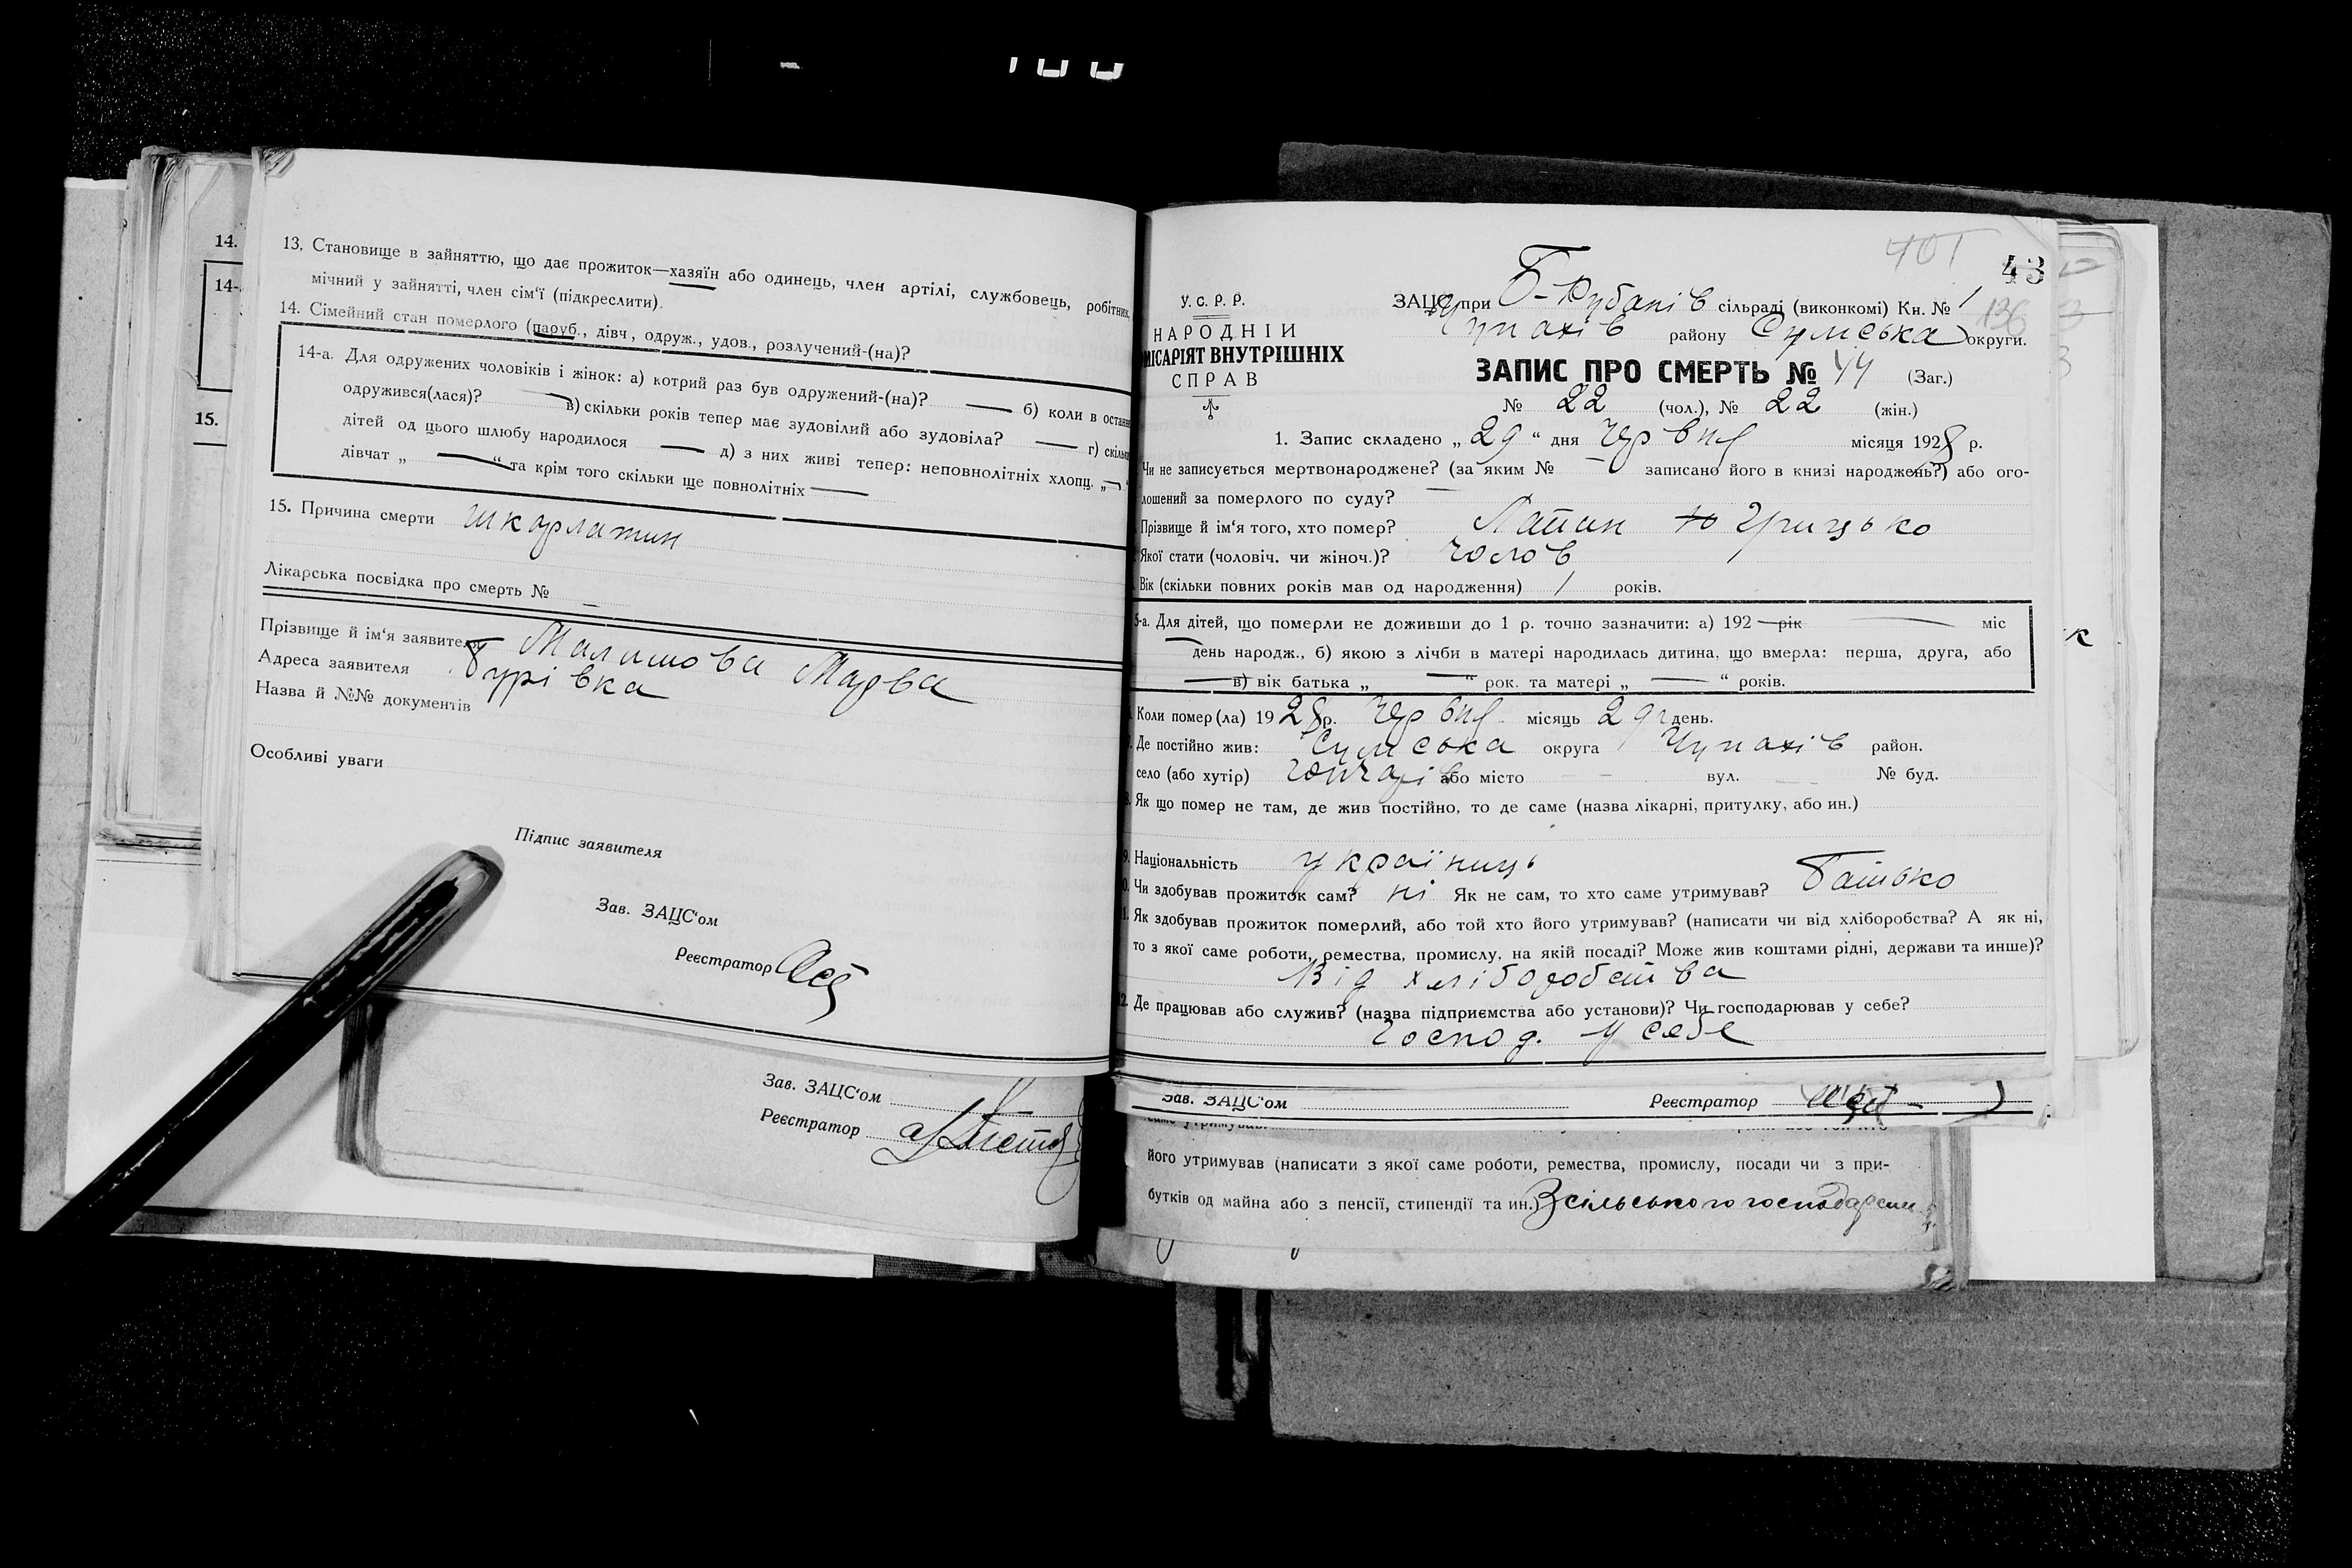 14.
14-
15.
13. Становище в зайняттю, що дає прожиток—хазяїн або одинець, член артілі, службовець, робітник,
мічний у зайнятті, член сім'ї (підкреслити).
14. Сімейний стан померлого (паруб., дівч, одруж., удов., розлучений-(на)?
14-а. Для одружених чоловіків і жінок: а) котрий раз був одружений-(на)? — б) коли в останн
одружився(лася)? — в) скільки років тепер має зудовілий або зудовіла? — г) скільк
дітей од цього шлюбу народилося — д) з них живі тепер: неповнолітніх хлопц. „—“
дівчат „ — “ та крім того скільки ще повнолітніх —
15. Причина смерти шкарлатин
Лікарська посвідка про смерть № —
Прізвище й ім'я заявителя Малишова Марва
Адреса заявителя Гурівка
Назва й №№ документів
Особливі уваги
Підпис заявителя
Зав. ЗАЦС'ом
Реєстратор
Зав. ЗАЦС'ом
Реєстратор
401
43
136
У. С. Р. Р.
НАРОДНІЙ
МІСАРІЯТ ВНУТРІШНІХ
СПРАВ
ЗАЦС при Б-Рубанів сільраді (виконкомі) Кн. № 1
Чупахів району Сумська округи.
ЗАПИС ПРО СМЕРТЬ № 44 (Заг.)
№ 22 (чол.), № 22 (жін.)
1. Запис складено „ 29 “ дня Червня місяця 1928 р.
Чи не записується мертвонароджене? (за яким № — записано його в книзі народжень?) або ого-
лошений за померлого по суду? —
Прізвище й ім'я того, хто помер? Лапин Грицько
Якої стати (чоловіч. чи жіноч.)? чолов
Вік (скільки повних років мав од народження) 1 років.
5-а. Для дітей, що померли не доживши до 1 р. точно зазначити: а) 192 — рік — міс
— день народж., б) якою з лічби в матері народилась дитина, що вмерла: перша, друга, або
— в) вік батька „ — “ рок. та матері „ — “ років.
Коли помер(ла) 1928р. Червня місяць 29 день.
7. Де постійно жив: Сумська округа Чупахів район.
село (або хутір) або місто — вул. — № буд.
8. Як що помер не там, де жив постійно, то де саме (назва лікарні, притулку, або ин.)
9. Національність українць
0. Чи здобував прожиток сам? ні Як не сам, то хто саме утримував? Батько
1. Як здобував прожиток померлий, або той хто його утримував? (написати чи від хліборобства? А як ні,
то з якої саме роботи, ремества, промислу, на якій посаді? Може жив коштами рідні, держави та инше)?
Від хліборобства
2. Де працював або служив? (назва підприємства або установи)? Чи господарював у себе?
Господ. у себе
Зав. ЗАЦС'ом Реєстратор
його утримував (написати з якої саме роботи, ремества, промислу, посади чи з при-
бутків од майна або з пенсії, стипендії та ин.) З сільського господарст